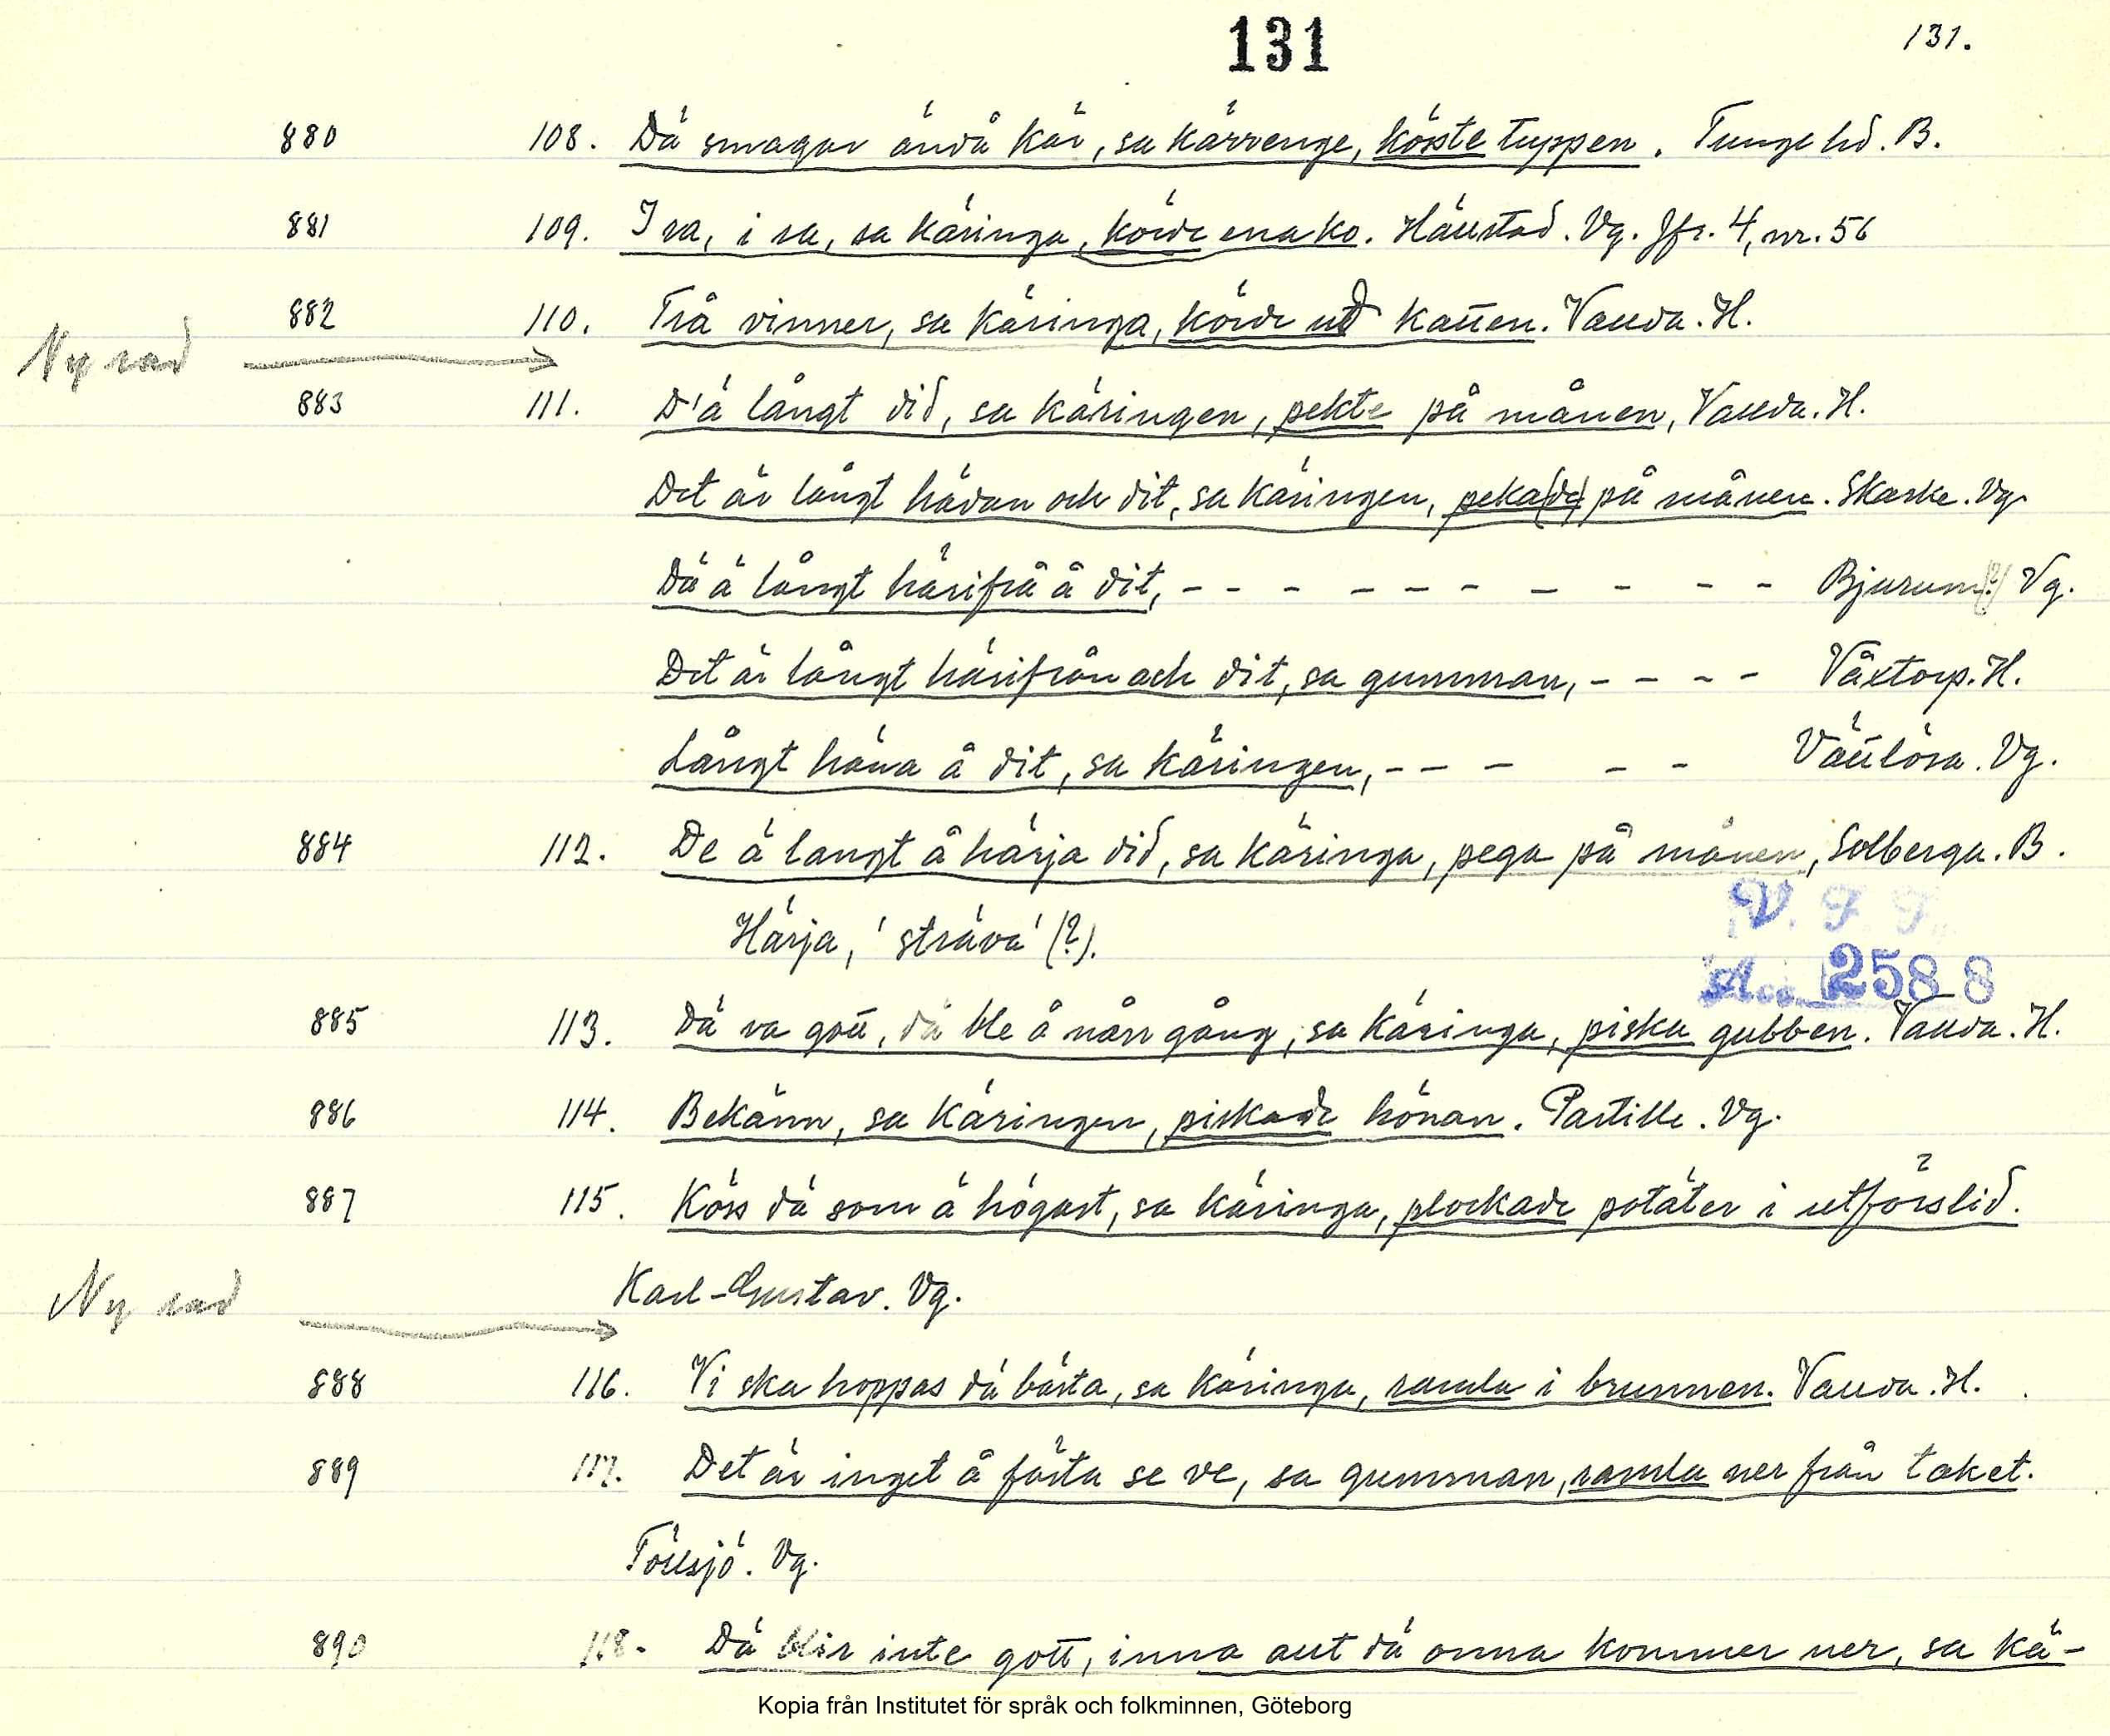 131
131.
880 108. Dä smagar ändå kär, sa kärrenge, köste tuppen. Tunge hd. B.
881 109. I ra, i ra, sa käringa, körde ena ko. Hällstad. Vg. Jfr. 4, nr. 56
882 110. Trå vinner, sa käringa, körde ud katten. Valda. H.
Ny rad
883 111. D'ä långt did, sa käringen, pekte på månen, Valda. H.
Det är långt hädan och dit, sa käringen, peka(de) på månen. Skarke. Vg.
Dä ä långt härifrå å dit, - - - - - - - - - - Bjurum(?) Vg.
Det är långt härifrån och dit, sa gumman, - - - - Våxtorp. H.
Långt häna å dit, sa käringen, - - - - - Vättlösa. Vg.
884 112. De ä langt å härja did, sa käringa, pega på månen, Solberga. B.
Härja, 'sträva' (?).
V. F.
Acc. 2588
885 113. Dä va gott, dä ble å nån gång, sa käringa, piska gubben. Valda. H.
886 114. Bekänn, sa käringen, piskade hönan. Partille. Vg.
887 115. Köss dä som ä högast, sa käringa, plockade potäter i utförslid.
Karl-Gustav. Vg.
Ny rad
888 116. Vi ska hoppas dä bästa, sa käringa, ramla i brunnen. Valda. H.
889 117. Det är inget å fästa se ve, sa gumman, ramla ner från taket.
Töllsjö. Vg.
890 118. Dä blir inte gott, inna allt dä onna kommer ner, sa kä-
Kopia från Institutet för språk och folkminnen, Göteborg